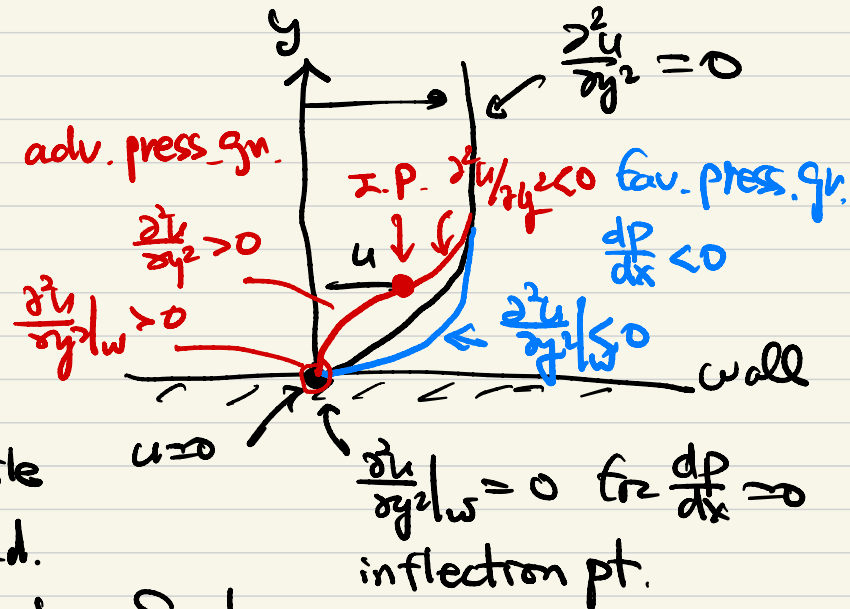 y
∂²u/∂y² = 0
adv. press. gr.
I.P.
∂²u/∂y² < 0
fav. press. gr.
∂²u/∂y² > 0
u
dp/dx < 0
∂²u/∂y²|w > 0
∂²u/∂y²|w ≤ 0
wall
u=0
∂²u/∂y²|w = 0 for dp/dx = 0
d.
inflection pt.